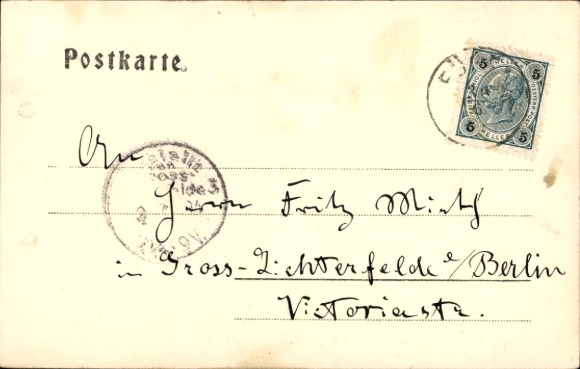 Postkarte.
5 5
5 5
HELLER
An
Herrn Fritz
in Gross-Lichterfelde b/Berlin
Victoriastr.